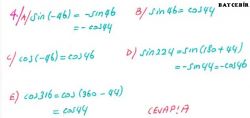 BAYCEBİR
4/ A) sin(-46) = -sin46
= -cos44
B) sin46 = cos44
C) cos(-46) = cos46
D) sin224 = sin(180+44)
= -sin44 = -cos46
E) cos316 = cos(360-44)
= cos44
CEVAP: A